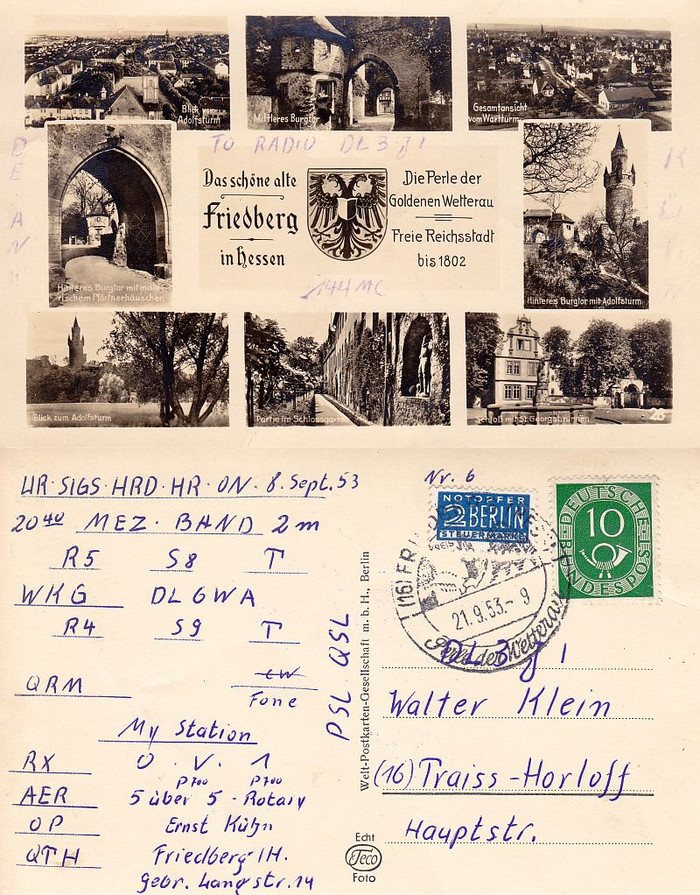 Blick vom
Adolfsturm
Mittleres Burgtor
Gesamtansicht
vom Wartturm
TO RADIO DL3 J1
Das schöne alte
Friedberg
in Hessen
Die Perle der
Goldenen Wetterau
Freie Reichsstadt
bis 1802
144 MC
Hinteres Burgtor mit male-
rischem Pförtnerhäuschen
Hinteres Burgtor mit Adolfsturm
Blick zum Adolfsturm
Partie im Schlossgarten
Schloß mit St. Georgsbrunnen
26
UR·SIGS·HRD·HR·ON·8.Sept.53
20⁴⁰ MEZ·BAND 2m
R5 S8 T
WKG DL6WA
R4 S9 T
QRM CW
Fone
My Station
RX O·V·1
P700 P700
AER 5 über 5-Rotary
OP Ernst Kühn
QTH Friedberg/H.
Gebr. Langstr. 14
PSL QSL
Welt-Postkarten-Gesellschaft m. b. H., Berlin
Nr. 6
NOTOPFER
2 BERLIN
STEUERMARKE
DEUTSCHE
10
BUNDESPOST
(16) FRIEDBERG
21.9.53.-9
Perle der Wetterau
DL3 J1
Walter Klein
(16) Traiss-Horloff
Hauptstr.
Echt
Teco
Foto